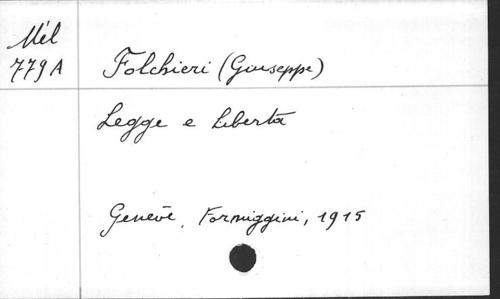 Mél
779A
Folchieri (Giuseppe)
Legge e Libertà
Genève, Formiggini, 1915